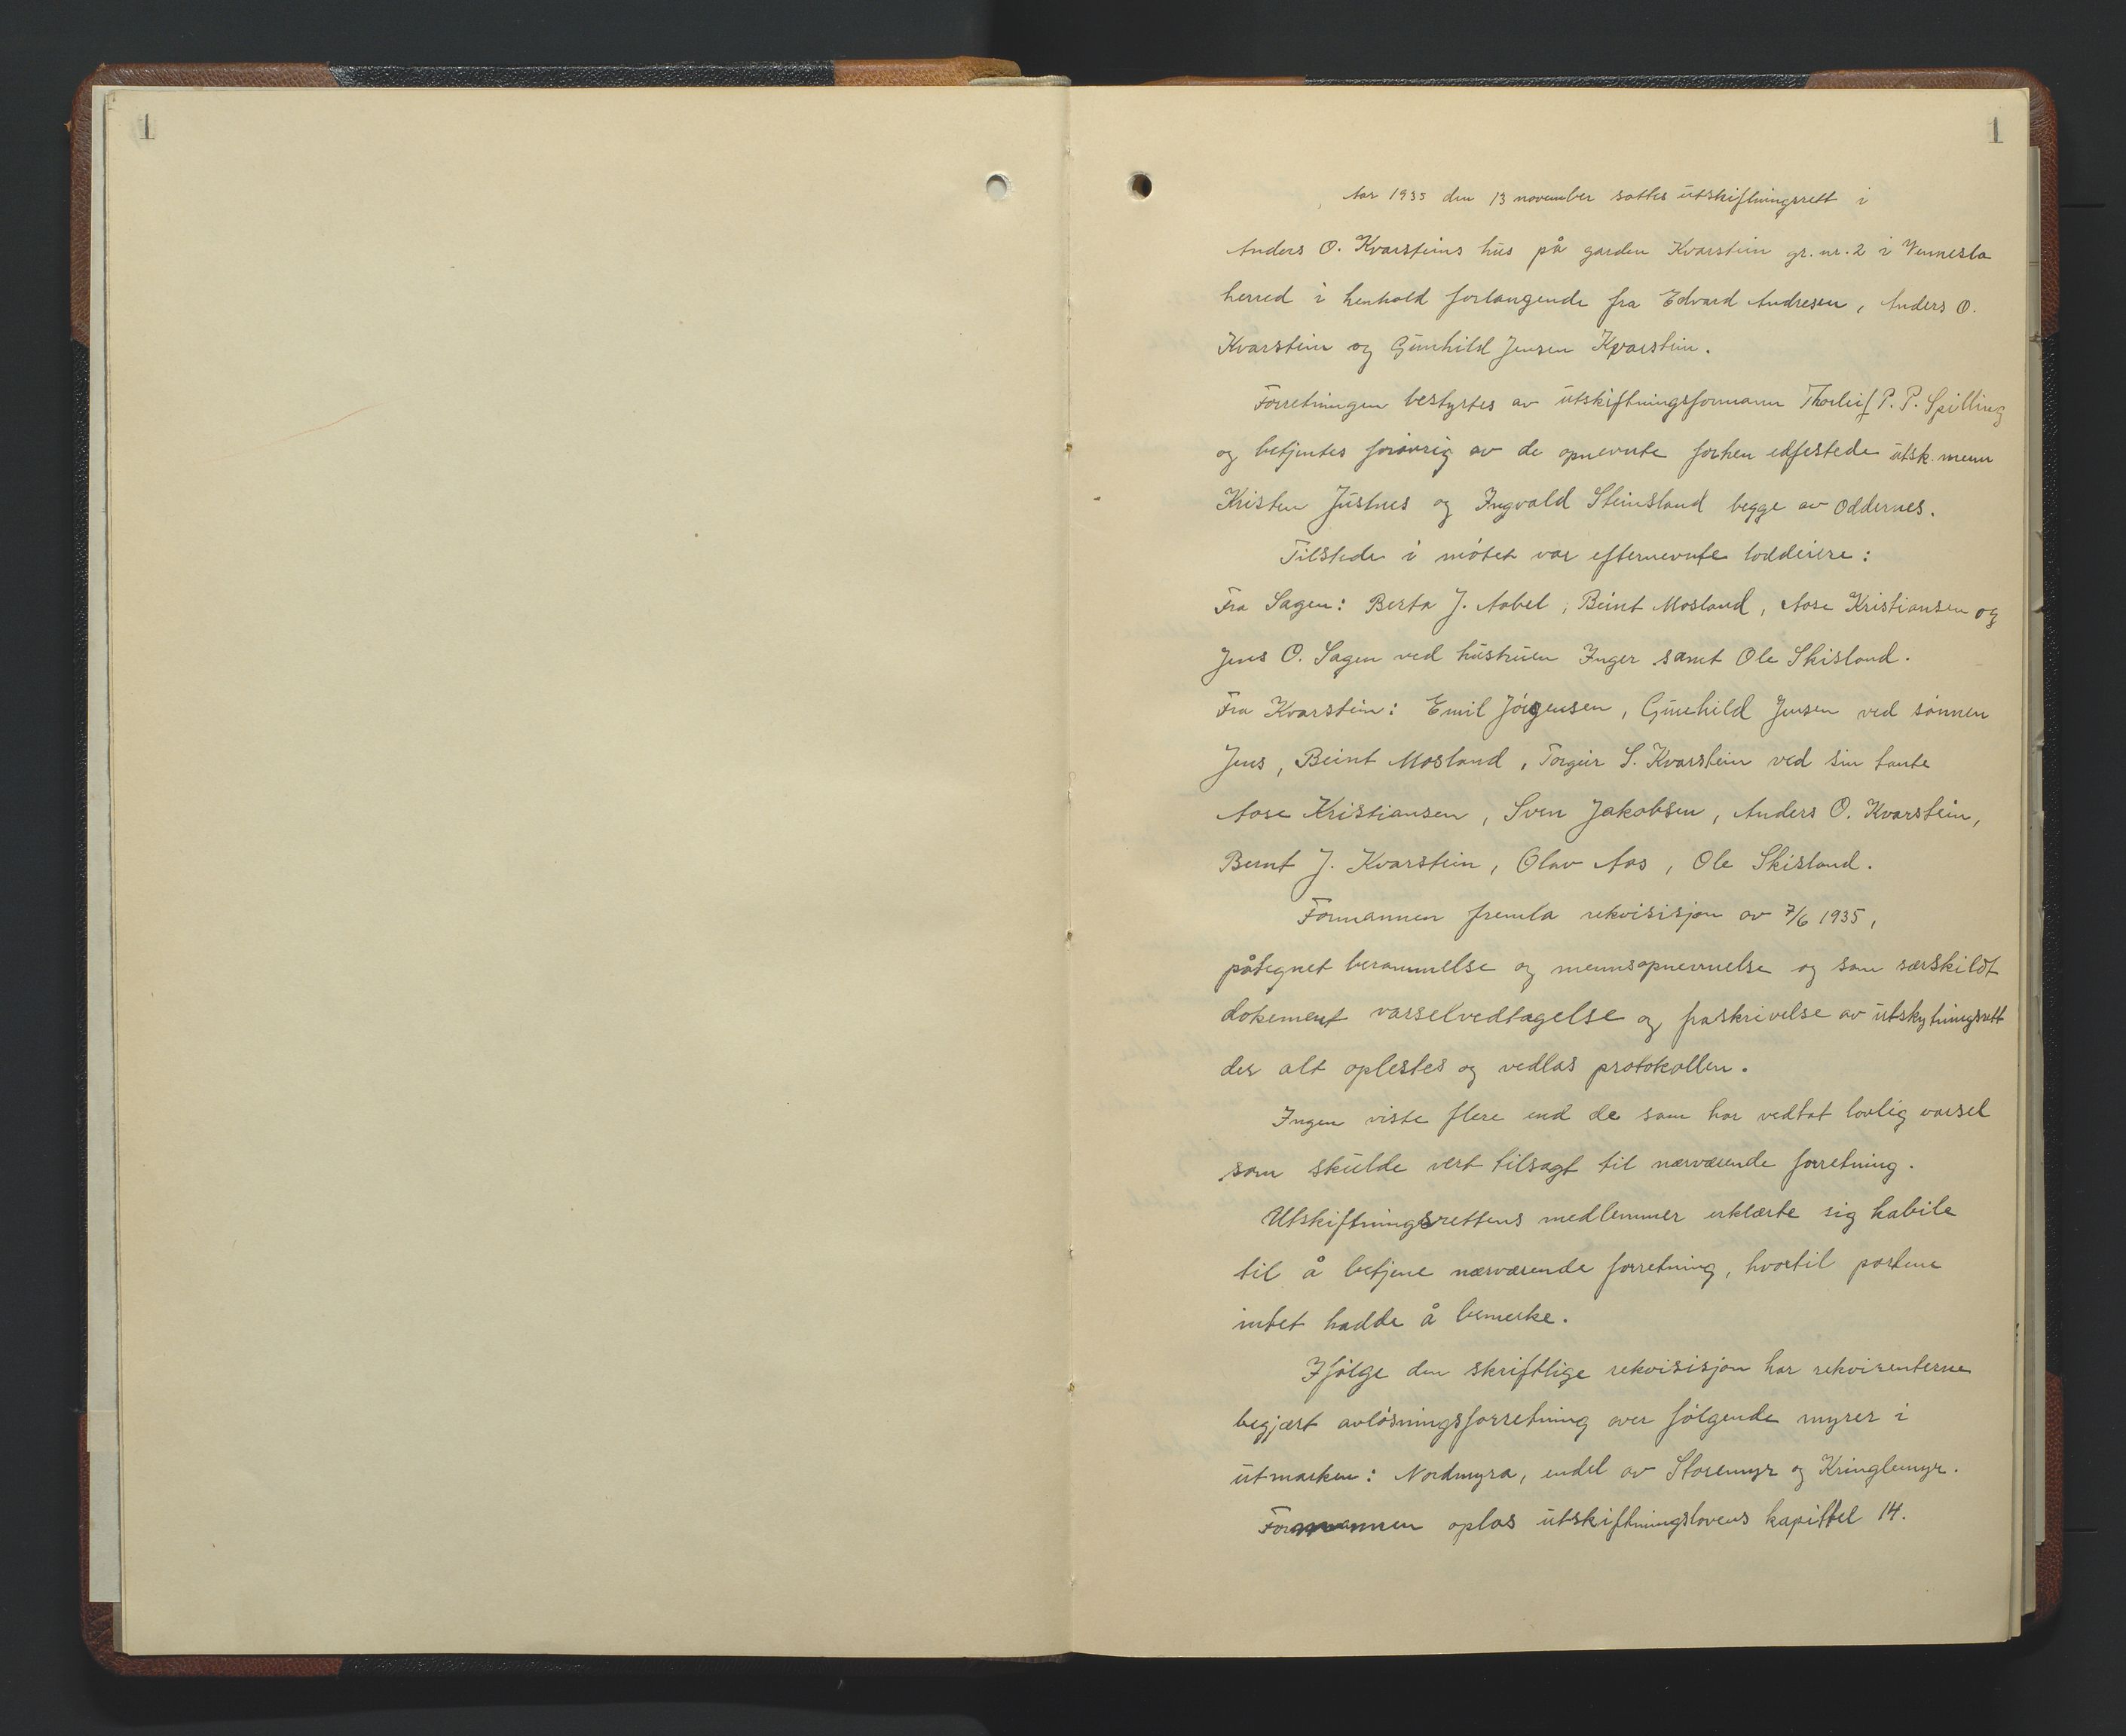 1
1
Aar 1935 den 13 november sattes utskiftningsrett i
Anders O. Kvarsteins hus på garden Kvarstein gr. nr. 2 i Vennesla
herred i henhold forlangende fra Edvard Andresen, Anders O.
Kvarstein og Gunhild Jensen Kvarstein.
Forretningen bestyrtes av utskiftningsformann Thorleif P. P. Spilling
og betjentes forøvrig av de opnevnte forhen edfestede utsk. menn
Kristen Justnes og Ingvald Steinsland begge av Oddernes.
Tilstede i møtet var efternevnte loddeiere:
Fra Sagen: Berta J. Aabel, Beint Mosland, Aase Kristiansen og
Jens O. Sagen ved hustruen Inger samt Ole Skisland.
Fra Kvarstein: Emil Jørgensen, Gunhild Jensen ved sønnen
Jens, Beint Mosland, Torgeir S. Kvarstein ved sin tante
Aase Kristiansen, Sven Jakobsen, Anders O. Kvarstein,
Bernt J. Kvarstein, Olav Aas, Ole Skisland.
Formannen fremla rekvisisjon av 7/6 1935,
påtegnet berammelse og mennsopnevnelse og som særskildt
dokement varselvedtagelse og fraskrivelse av utskytningsrett
der alt oplestes og vedlas protokollen.
Ingen viste flere end de som har vedtat lovlig varsel
som skulde vert tilsagt til nærværende forretning.
Utskiftningsrettens medlemmer erklærte sig habile
til å betjene nærværende forretning, hvortil partene
intet hadde å bemerke.
Ifølge den skriftlige rekvisisjon har rekvirenterne
begjært avløsningsforretning over følgende myrer i
utmarken: Nordmyra, endel av Storemyr og Kringlemyr.
Formannen oplas utskiftningslovens kapittel 14.